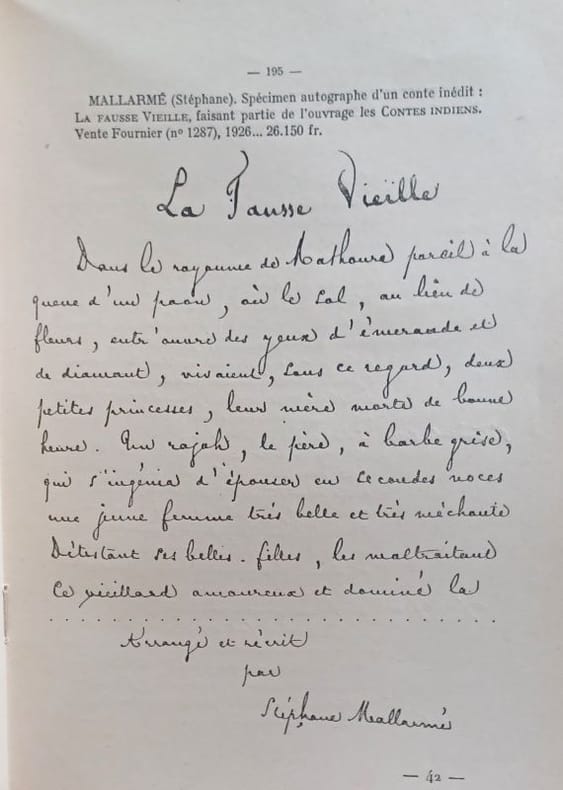 — 195 —
MALLARMÉ (Stéphane). Spécimen autographe d'un conte inédit :
LA FAUSSE VIEILLE, faisant partie de l'ouvrage les CONTES INDIENS.
Vente Fournier (nº 1287), 1926... 26.150 fr.
La Fausse Vieille
Dans le royaume de Mathoura pareil à la
queue d'un paon, où le sol, au lieu de
fleurs, entr'ouvre des yeux d'émeraude et
de diamant, vivaient, sous ce regard, deux
petites princesses, leur mère morte de bonne
heure. Un rajah, le père, à barbe grise,
qui s'ingénia d'épouser en secondes noces
une jeune femme très belle et très méchante
Détestant ses belles-filles, les maltraitant
Ce vieillard amoureux et dominé la
. . . . . . . . . . . . . . . . . . . . . . . . . . . . . .
Arrangé et récrit
par
Stéphane Mallarmé
— 42 —